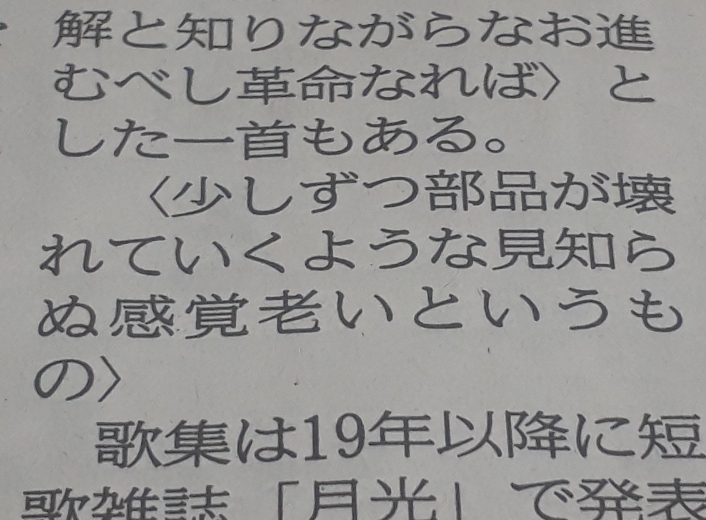 解と知りながらなお進
むべし革命なれば〉と
した一首もある。
〈少しずつ部品が壊
れていくような見知ら
ぬ感覚老いというも
の〉
歌集は19年以降に短
歌雑誌「月光」で発表